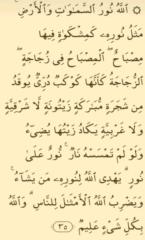 ۞ ٱللَّهُ نُورُ ٱلسَّمَٰوَٰتِ وَٱلْأَرْضِ ۚ
مَثَلُ نُورِهِۦ كَمِشْكَوٰةٍ فِيهَا
مِصْبَاحٌ ۖ ٱلْمِصْبَاحُ فِى زُجَاجَةٍ ۖ
ٱلزُّجَاجَةُ كَأَنَّهَا كَوْكَبٌ دُرِّىٌّ يُوقَدُ
مِن شَجَرَةٍ مُّبَٰرَكَةٍ زَيْتُونَةٍ لَّا شَرْقِيَّةٍ
وَلَا غَرْبِيَّةٍ يَكَادُ زَيْتُهَا يُضِىٓءُ
وَلَوْ لَمْ تَمْسَسْهُ نَارٌ ۚ نُّورٌ عَلَىٰ
نُورٍ ۗ يَهْدِى ٱللَّهُ لِنُورِهِۦ مَن يَشَآءُ ۚ
وَيَضْرِبُ ٱللَّهُ ٱلْأَمْثَٰلَ لِلنَّاسِ ۗ وَٱللَّهُ
بِكُلِّ شَىْءٍ عَلِيمٌ ٣٥